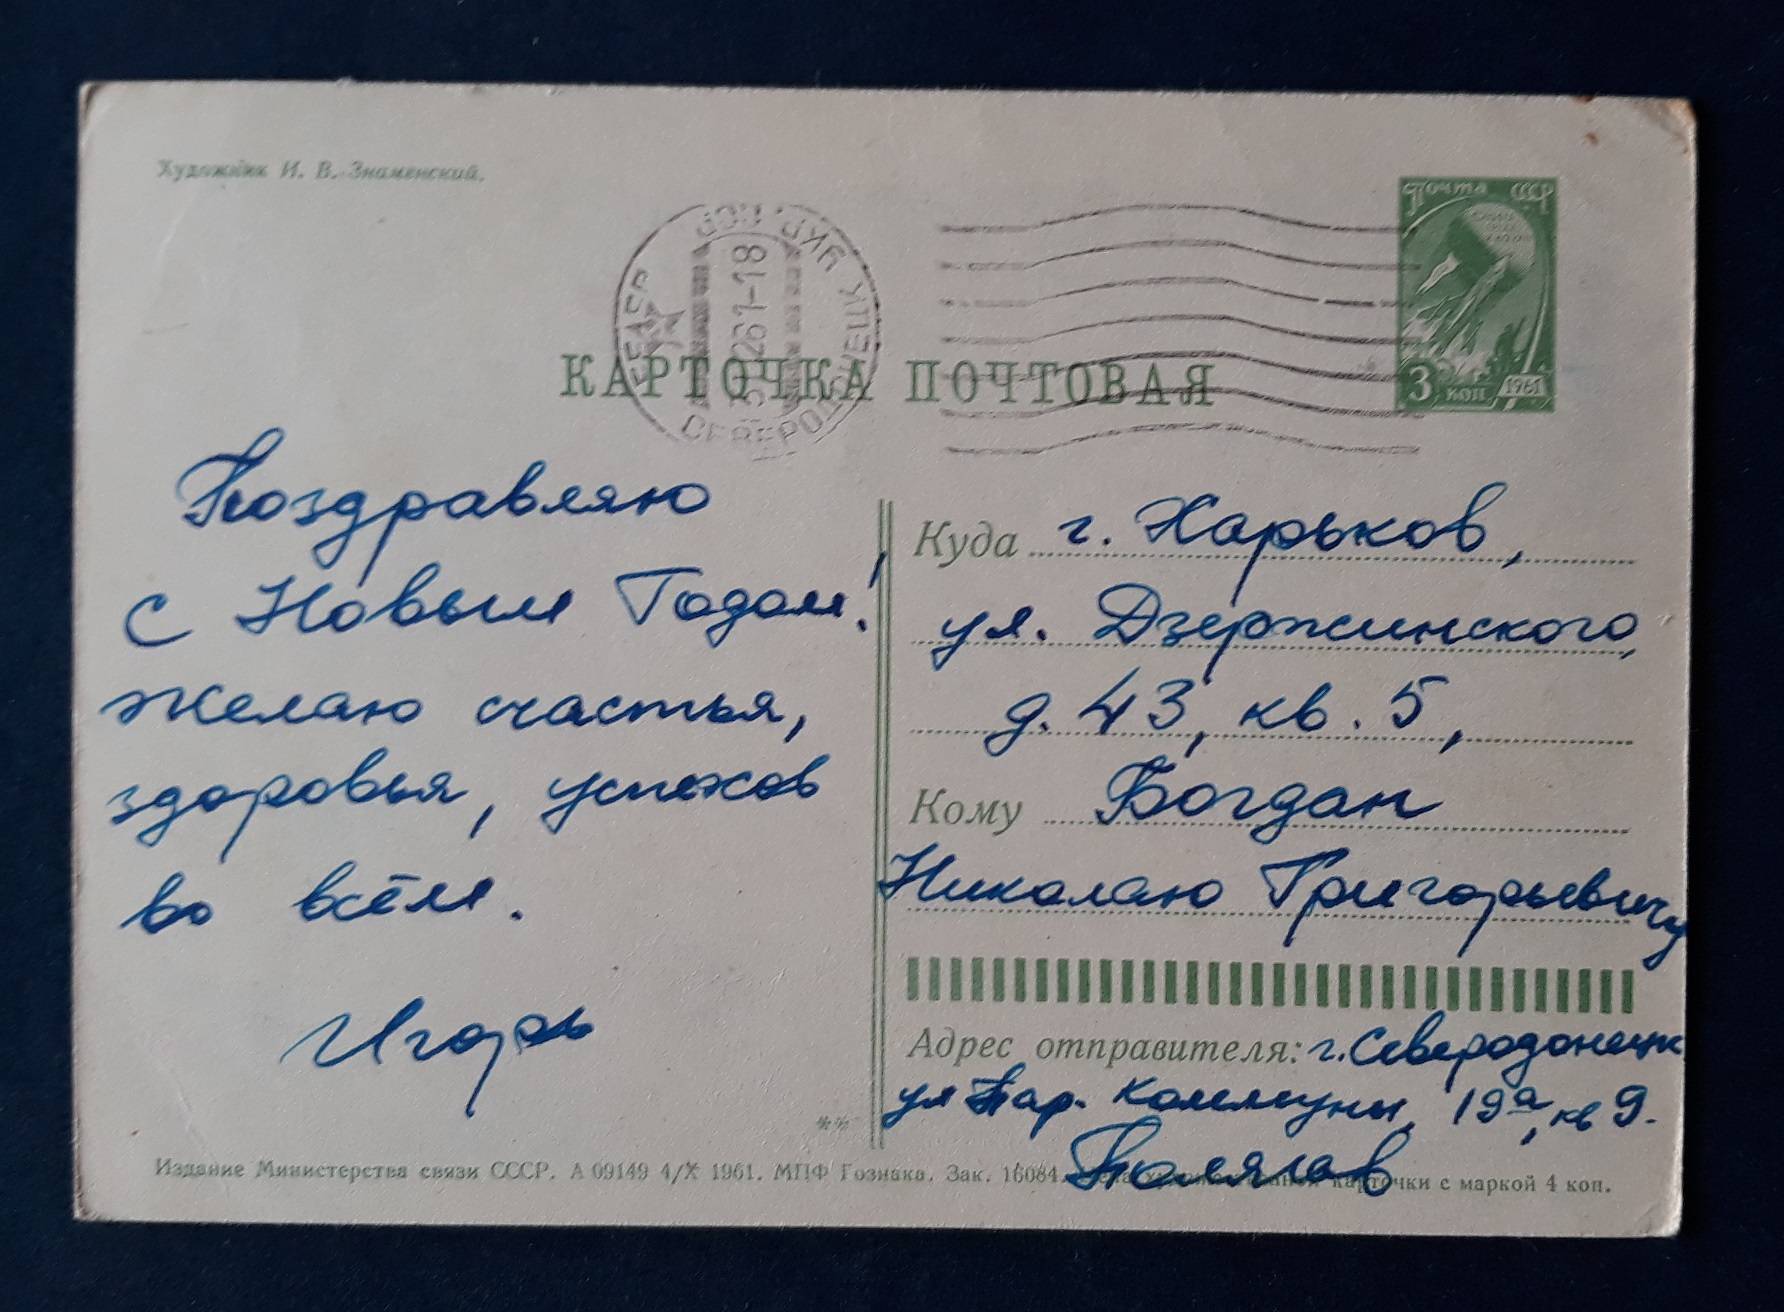 Художник И. В. Знаменский.
Почта СССР
3 коп 1961
УКР. ССР
26 1-18
КАРТОЧКА ПОЧТОВАЯ
Поздравляю
с Новым Годом!
желаю счастья,
здоровья, успехов
во всём.
Игорь
Куда г. Харьков,
ул. Дзержинского,
д. 43, кв. 5,
Кому Богдан
Николаю Григорьевичу
Адрес отправителя: г. Северодонецк
ул Пар. Коммуны, 19а, кв 9.
**
Издание Министерства связи СССР. А 09149 4/X 1961. МПФ Гознака. Зак. 16084. карточки с маркой 4 коп.